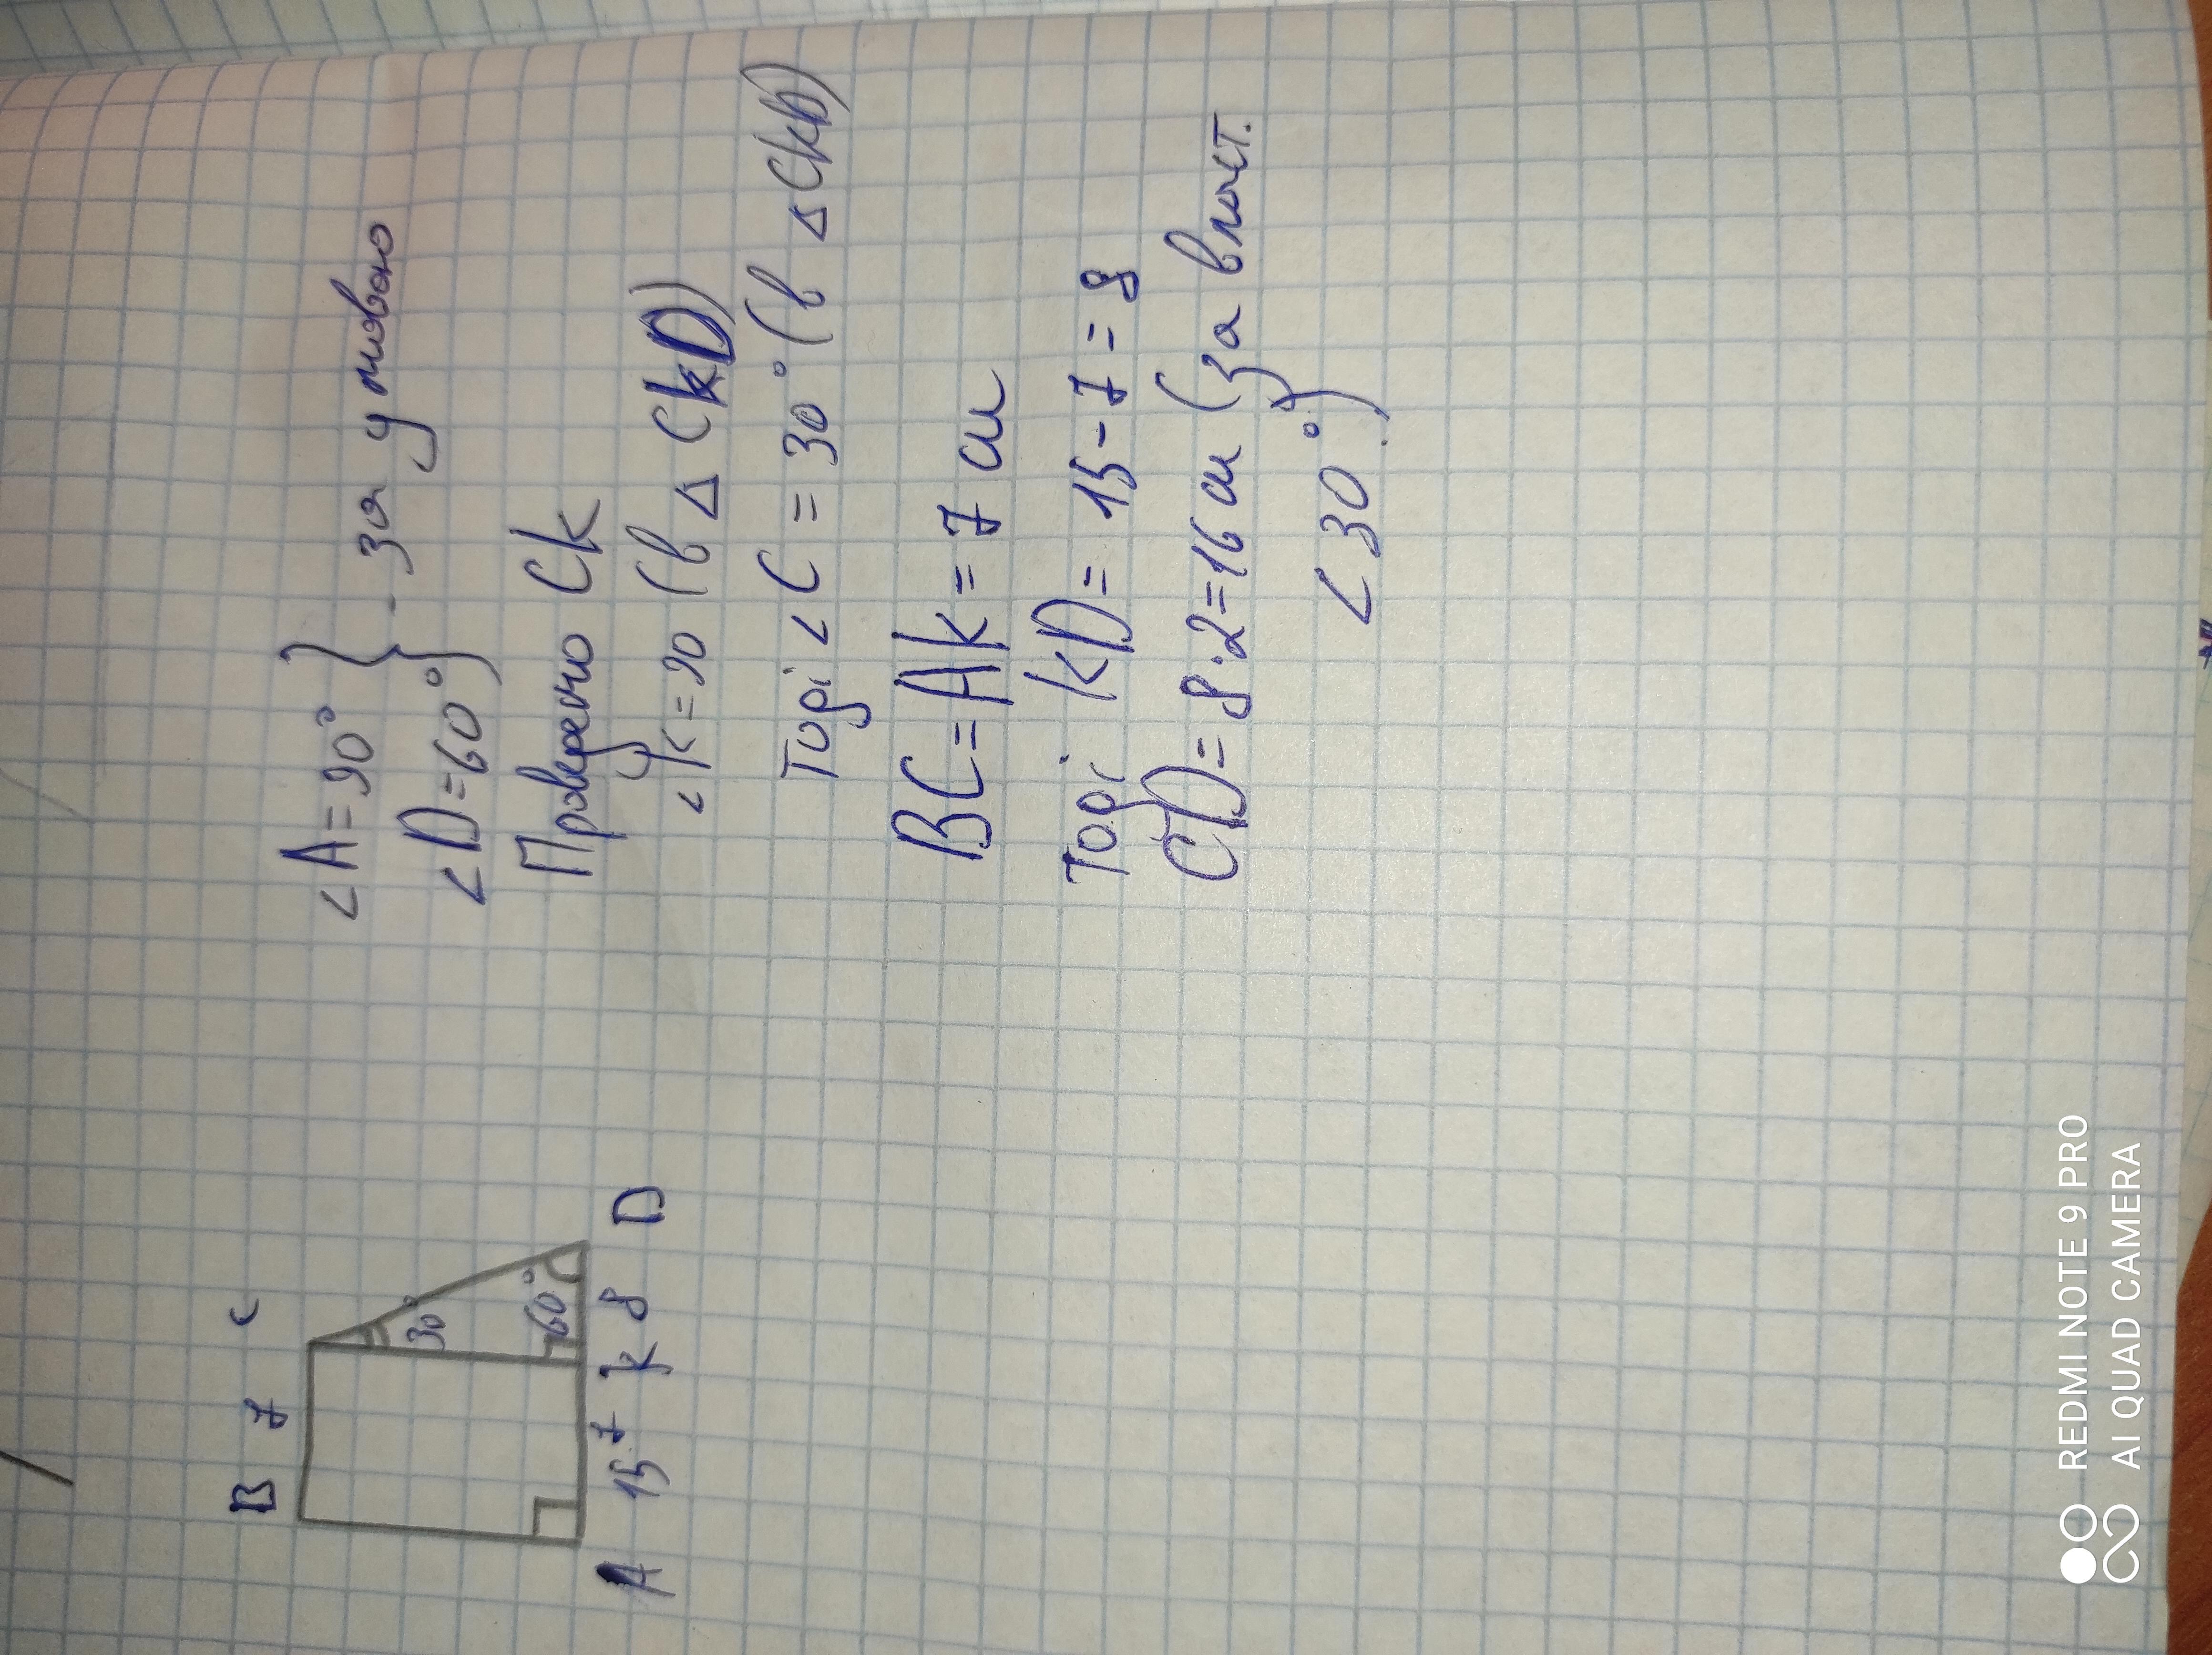 B 7 C
30°
60°
A 15 7 K 8 D
∠A = 90°
∠D = 60° } - за умовою
Проведено CK
∠K = 90 (в △ CKD)
Тоді ∠C = 30° (в △ CKD)
BC = AK = 7 см
Тоді KD = 15 - 7 = 8
CD = 8 · 2 = 16 см (за власт.
∠30°)
REDMI NOTE 9 PRO
AI QUAD CAMERA